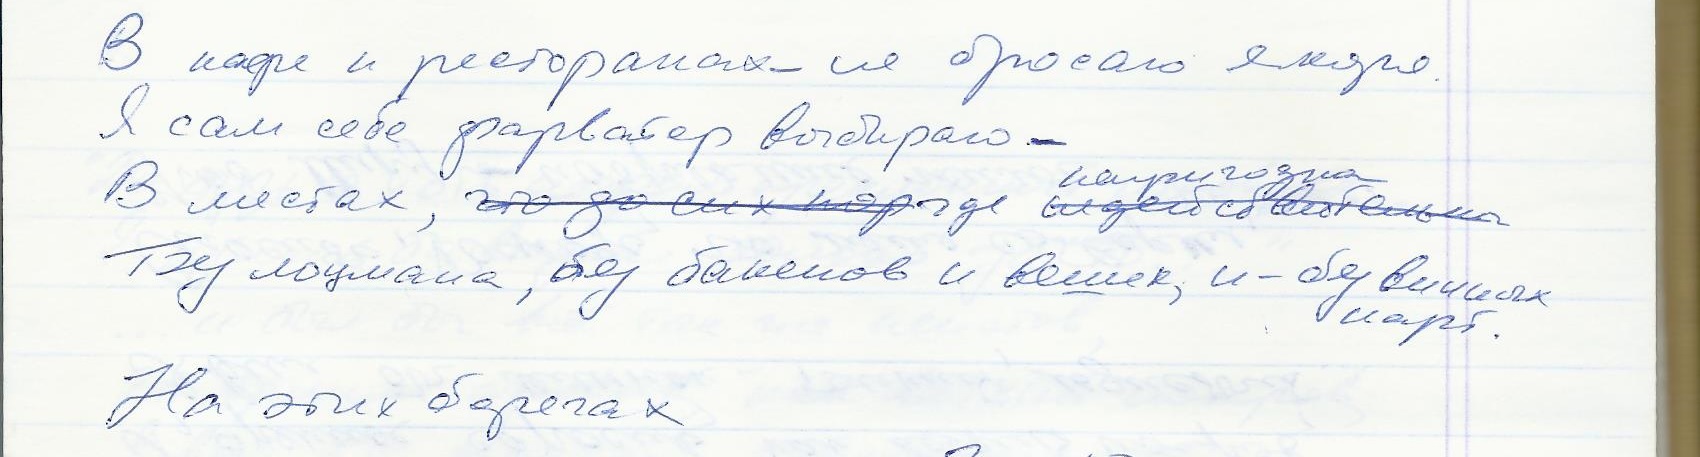 В кафе и ресторанах – не бросаю якоря.
Я сам себе фарватер выбираю –
непригодна
В местах, что до сих пор где недействительны
Без лоцмана, без бакенов и вешек, и – без винных
карт.
На этих берегах